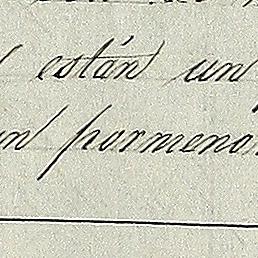 están un
un pormeno